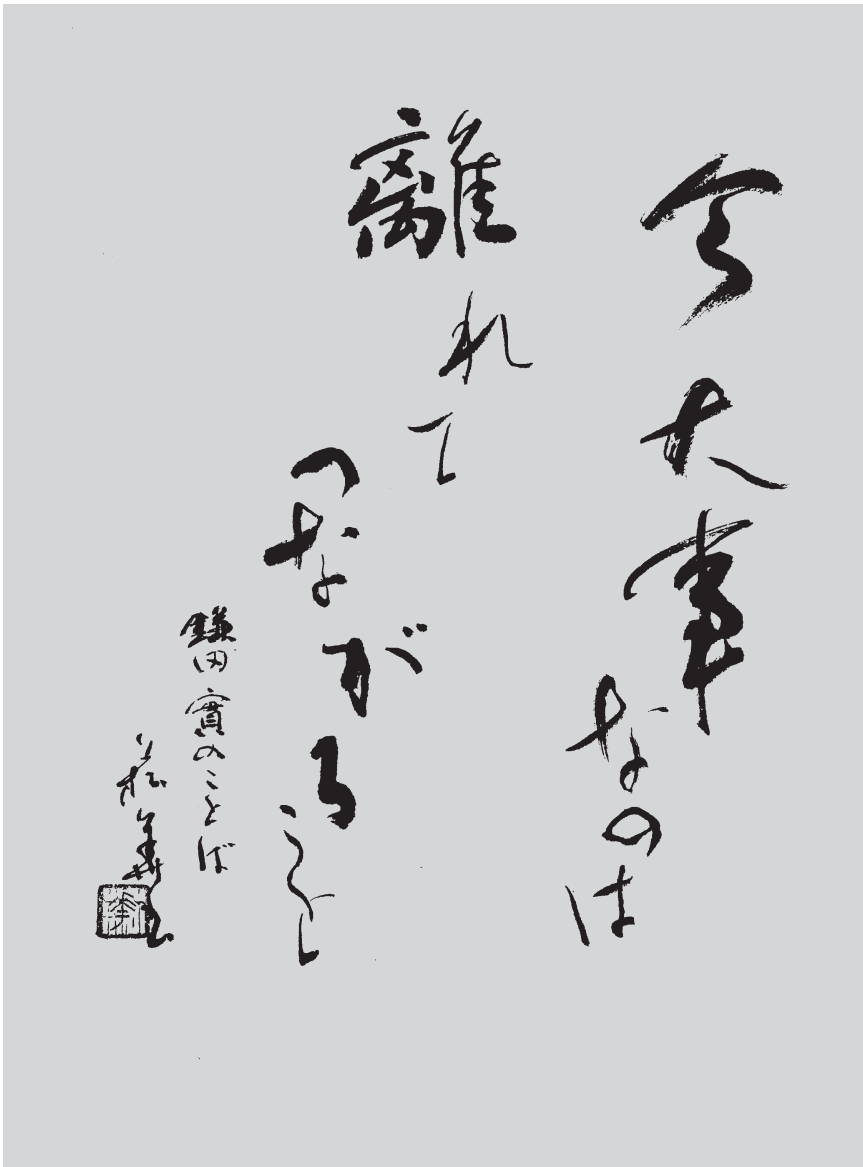 今大事なのは
離れて
つながること
鎌田實のことば